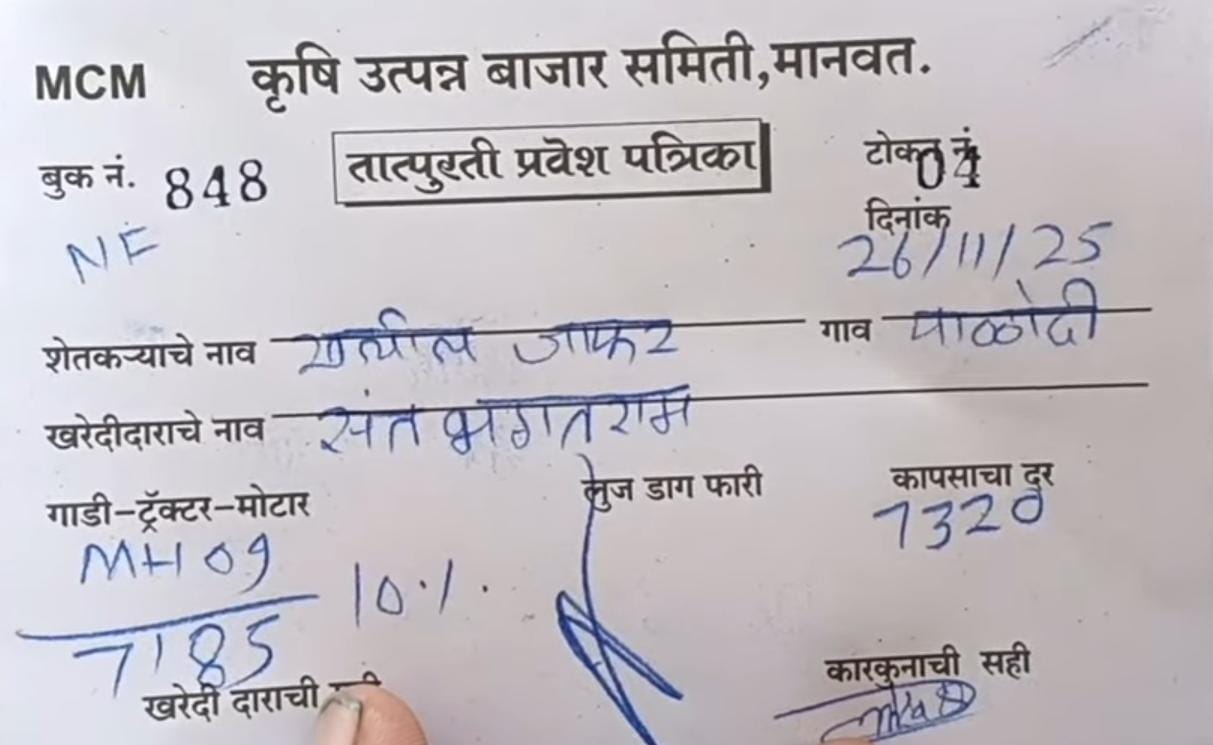 MCM कृषि उत्पन्न बाजार समिती,मानवत.
बुक नं. 848 तात्पुरती प्रवेश पत्रिका टोकन नं 04
NE दिनांक
26/11/25
शेतकऱ्याचे नाव जाफर गाव पाळोदी
खरेदीदाराचे नाव संत भगतराम
गाडी-ट्रॅक्टर-मोटार लुज डाग फारी कापसाचा दर
MH 09 10% 7320
7185
खरेदी दाराची कारकुनाची सही